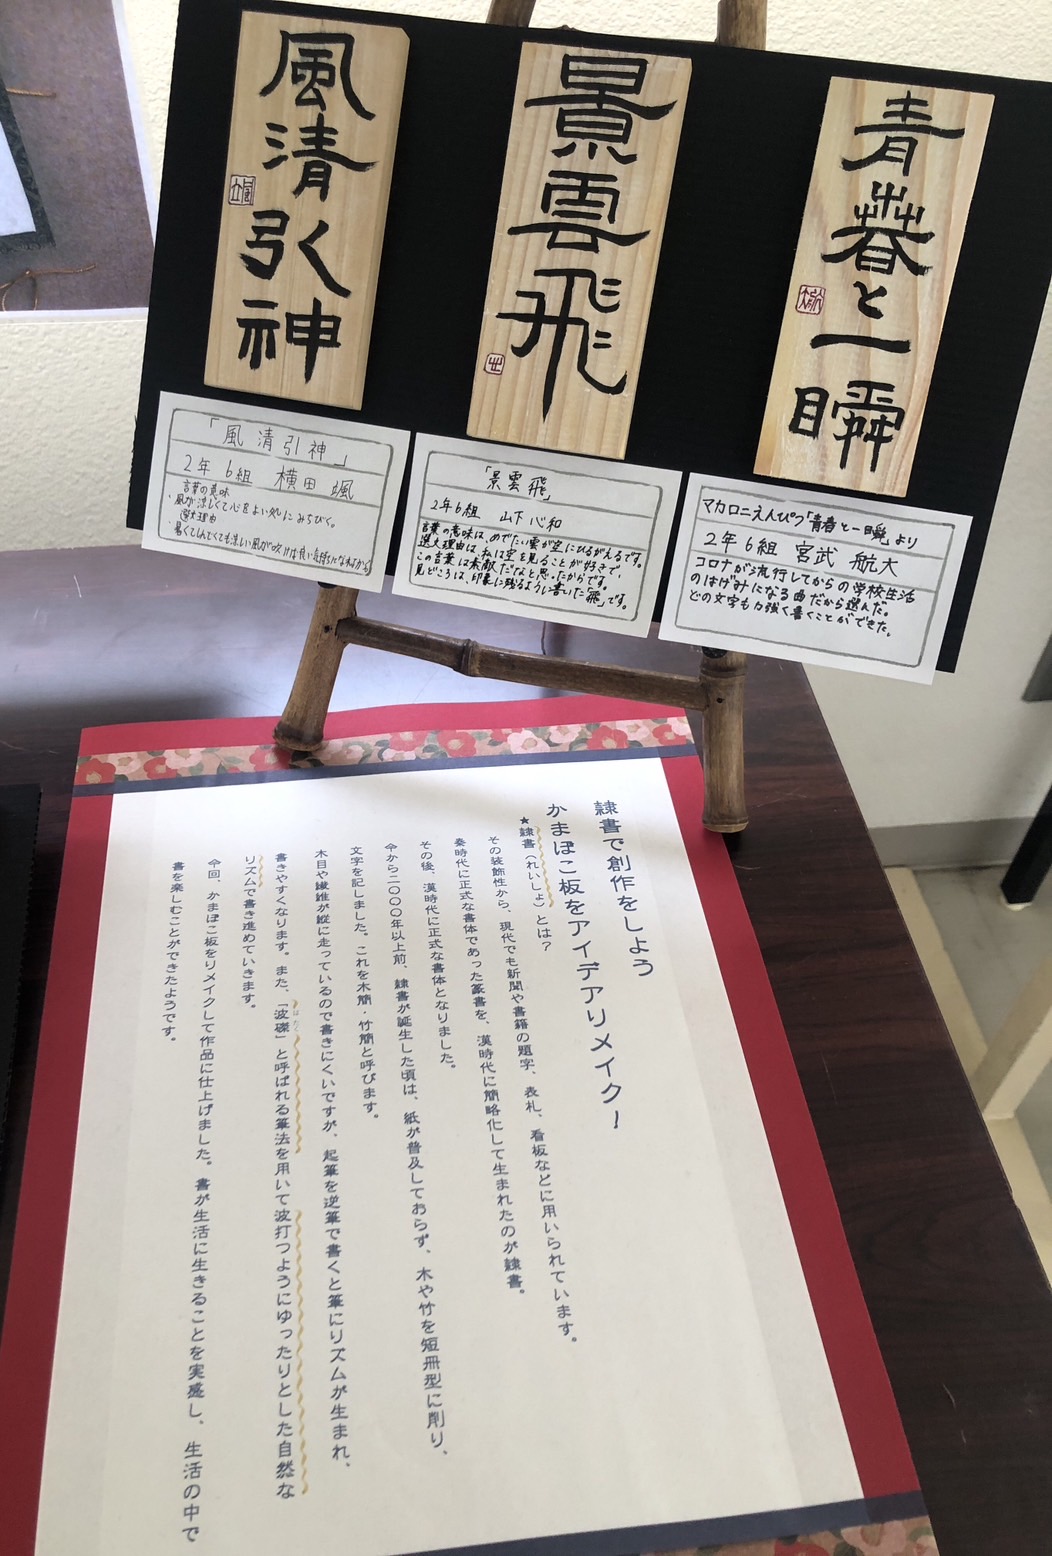 風清引神
景雲飛
青春と一瞬
「風清引神」
2年 6組 横田 颯
言葉の意味
・風が涼しくて心をよい処にみちびく。
選大理由
・暑くてしんどくても涼しい風が吹けば良い気持ちになれるから
「景雲飛」
2年6組 山下 心和
言葉の意味は、めでたい雲が空にひるがえるです。
選大理由は、私は空を見ることが好きで、
この言葉は素敵だなと思ったからです。
見どころは、印象に残るように書いた「飛」です。
マカロニえんぴつ「青春と一瞬」より
2年6組 宮武 航大
コロナが流行してからの学校生活
のはげみになる曲だから選んだ。
どの文字も力強く書くことができた。
隷書で創作をしよう
かまぼこ板をアイデアリメイク!
★隷書（れいしょ）とは？
その装飾性から、現代でも新聞や書籍の題字、表札、看板などに用いられています。
秦時代に正式な書体であった篆書を、漢時代に簡略化して生まれたのが隷書。
その後、漢時代に正式な書体となりました。
今から二〇〇〇年以上前、隷書が誕生した頃は、紙が普及しておらず、木や竹を短冊型に削り、
文字を記しました。これを木簡・竹簡と呼びます。
木目や繊維が縦に走っているので書きにくいですが、起筆を逆筆で書くと筆にリズムが生まれ、
書きやすくなります。また、「波磔」と呼ばれる筆法を用いて波打つようにゆったりとした自然な
はたく
リズムで書き進めていきます。
今回、かまぼこ板をリメイクして作品に仕上げました。書が生活に生きることを実感し、生活の中で
書を楽しむことができたようです。